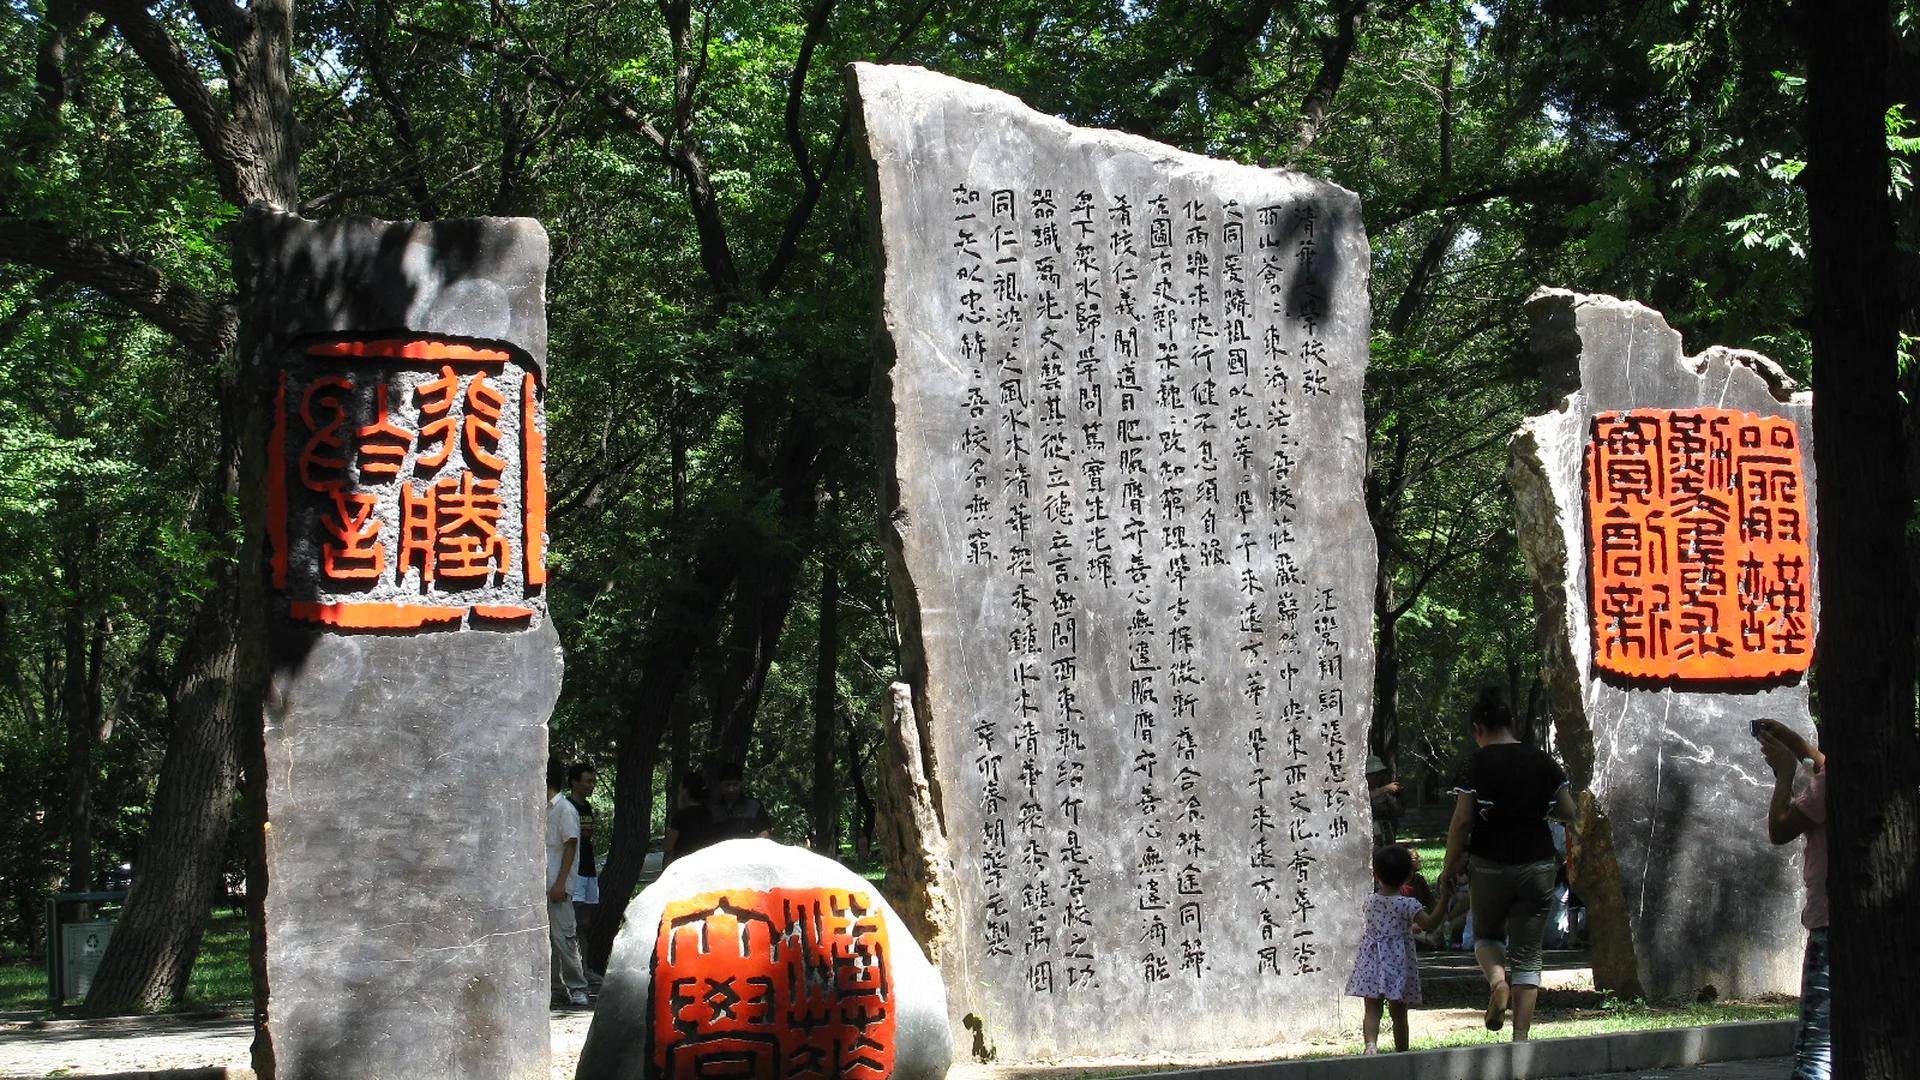 行勝
於言
清華
大學
清華大學校歌
汪鸞翔詞張慧珍曲
西山蒼〻東海茫〻吾校莊嚴巋然中央東西文化薈萃一堂
大同爰躋祖國以光莘〻學子來遠方莘〻學子來遠方春風
化雨樂未央行健不息須自强
左圖右史鄴架巍〻致知窮理學古探微新舊合冶殊途同歸
肴核仁義聞道日肥服膺守善心無違服膺守善心無違海能
卑下衆水歸學問篤實生光輝
器識爲先文藝其從立德立言無問西東孰紹介是吾校之功
同仁一視泱〻大風水木清華衆秀鍾水木清華衆秀鍾萬悃
如一矢以忠赫〻吾校名無窮
辛卯春胡
元製
嚴謹
勤奮求
實創新